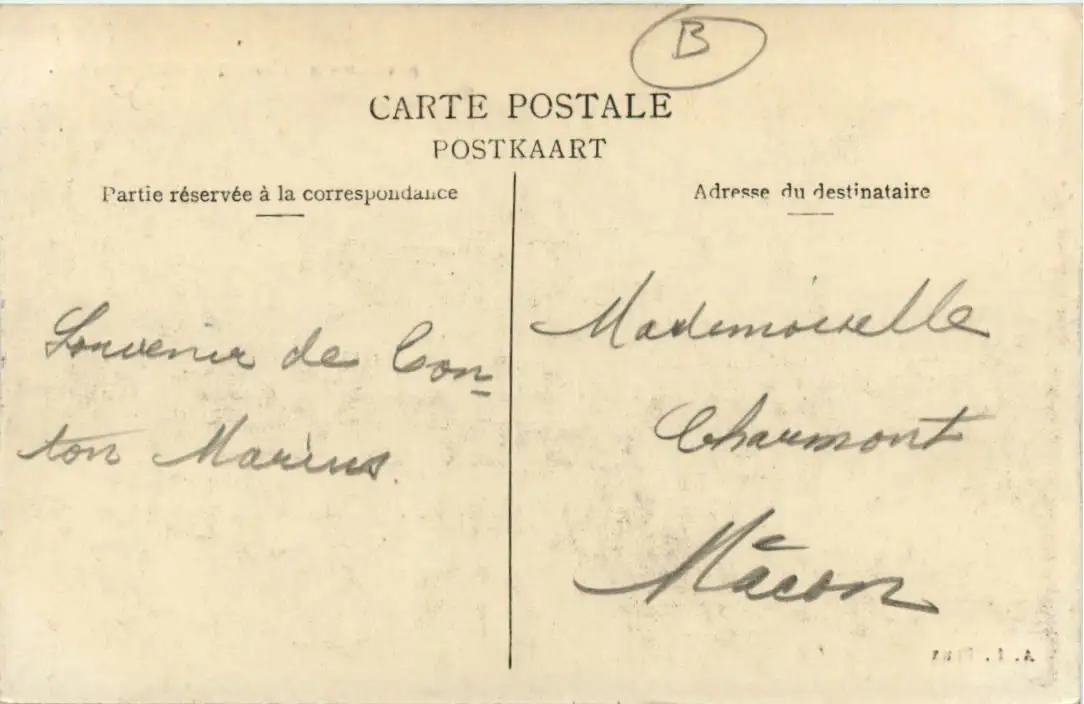 B
CARTE POSTALE
POSTKAART
Partie réservée à la correspondance
Souvenir de Con=
ton Marius.
Adresse du destinataire
Mademoiselle
Charmont
Mâcon